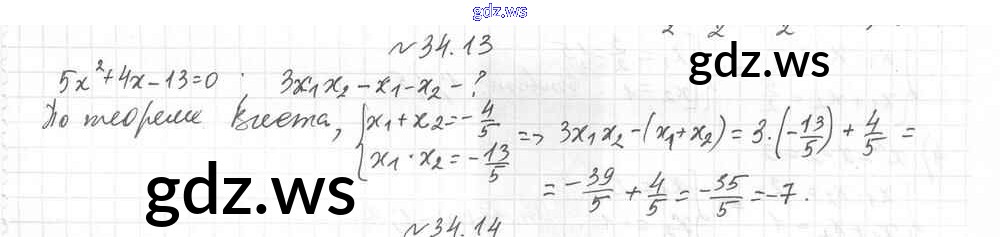 gdz.ws
№34.13
gdz.ws
5x²+4x-13=0 ; 3x₁x₂-x₁-x₂-?
По теореме Виета, { x₁+x₂=-4/5 x₁·x₂=-13/5 => 3x₁x₂-(x₁+x₂)=3·(-13/5)+4/5=
=-39/5+4/5=-35/5=-7.
gdz.ws
№34.14